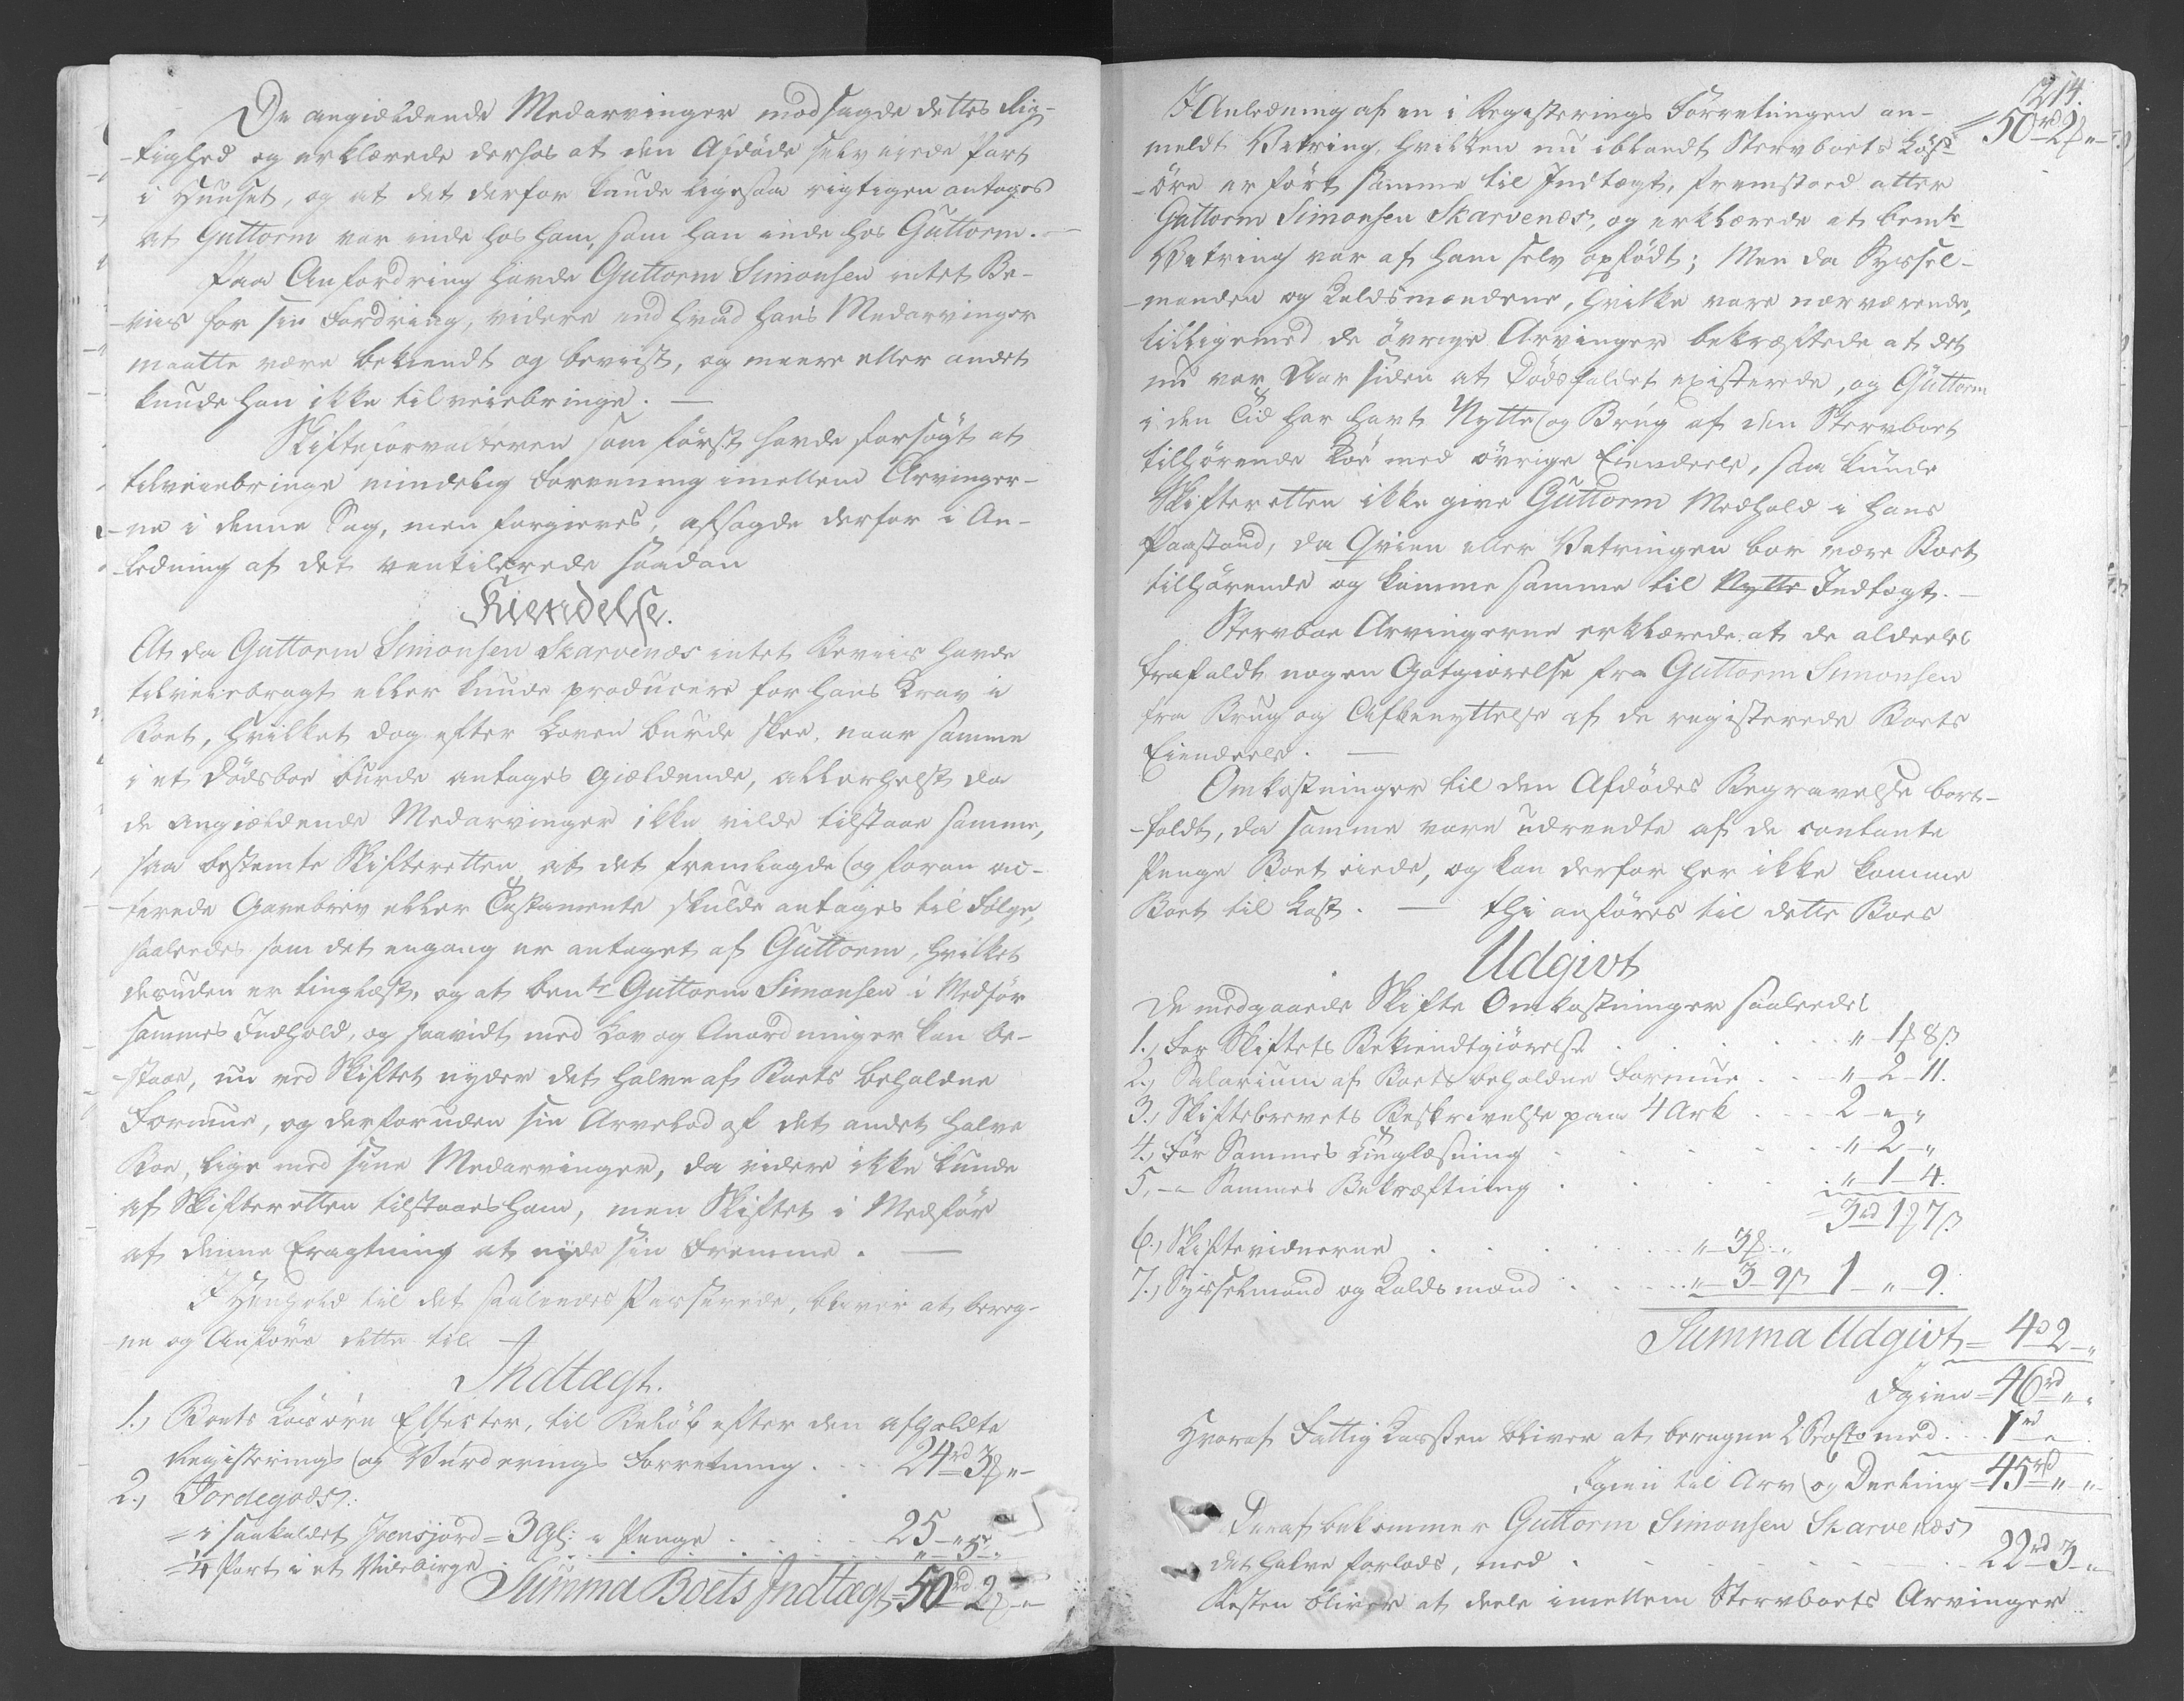 De angiældende Medarvinger modsagde dettes Rig-
-tighed og erklærede derhos at den Afdöde selv eiede Part
i Huuset, og at det derfor kunde ligesaa rigtigen antages
at Guttorm var inde hos ham, som han inde hos Guttorm. —
Paa Anfordring havde Guttorm Simonsen intet Be-
-viis for sin Fordring, videre end hvad hans Medarvinger
maatte være bekiendt og beviist, og meere eller andet
kunde han ikke tilveiebringe. —
Skifteforvalteren som först havde forsögt at
tilveiebringe mindelig Forening imellem Arvinger-
-ne i denne Sag, men forgieves, afsagde derfor i An-
-ledning af det ventilerede saadan
Kiendelse.
At da Guttorm Simonsen Skarvenæs intet Beviis havde
tilveiebragt eller kunde producere for hans Krav i
Boet, hvilket dog efter Loven burde skee, naar samme
i et Dödsboe burde antages giældende, allerhelst da
de angiældende Medarvinger ikke vilde tilstaae samme,
saa bestemte Skifteretten at det fremlagde og foran ac-
-terede Gavebrev eller Testamente skulde antages til Fölge,
saaledes som det engang er antaget af Guttorm, hvilket
desuden er tinglæst, og at bemte Guttorm Simonsen i Medför
sammes Indhold, og saavidt med Lov og Anordninger kan be-
-staae, nu ved Skiftet nyder det halve af Boets beholdne
Formue, og derforuden sin Arvelod af det andet halve
Boe, lige med sine Medarvinger, da videre ikke kunde
af Skifteretten tilstaaes ham, men Skiftet i Medför
af denne Eragtning at nyde sin Fremme. —
I Henhold til det saaledes Passerede, bliver at bereg-
-ne og Anföre dette til
Indtægt.
1., Boets Lösöre Effecter, til Belöb efter den afholdte
Registerings og Vurderings Forretning . . . 24rd 3 „ -
2., Jordegods:
= i saakaldet Jensjord = 3 Gl: „ Penge . . . 25 - „ -
= 1/4 Part i et
Summa Boets Indtægt = 50rd 2 „ -
214.
= 50rd 2 „ -
I Anledning af en i Registerings Forretningen an-
meldt Vetring, hvilken nu iblandt Stervboets Lös-
-öre er fört samme til Indtægt, fremstoed atter
Guttorm Simonsen Skarvenæs, og erklærede at bemte
Vetring var af ham selv opfödt; Men da Syssel-
-manden og Kaldsmændene, hvilke vare nærværende,
tilligemed de övrige Arvinger bekræftede at det
nu var Aar siden at Dödsfaldet existerede, og Guttorm
i den Tid har havt Nytte og Brug af den Stervboet
tilhörende Koe med övrige Eiendeele, saa kunde
Skifteretten ikke give Guttorm Medhold i hans
Paastand, da Qvien eller Vetringen bör være Boet
tilhörende og komme samme til Nytte Indtægt. —
Stervboe Arvingerne erklærede at de aldeeles
frafaldt nogen Godtgiörelse fra Guttorm Simonsen
fra Brug og Afbenyttelse af de registerede Boets
Eiendeele. —
Omkostninger til den Afdödes Begravelse bort-
-faldt, da samme vare udreedte af de contante
Penge Boet eiede, og kan derfor her ikke komme
Boet til Last. — thi anföres til dette Boes
Udgivt
De medgaaede Skifte Omkostninger saaledes
1., For Skiftets Bekiendtgiörelse . . . „ 1 8
2., Salarium af Boets beholdne Formue . . . „ - 2 - 11.
3., Skiftebrevets Beskrivelse paa 4 Ark . . . 2 - „ - „
4., For Sammes Tinglæsning . . . „ - 2 - „
5., - „ Sammes Bekræftning . . . „ - 1 - 4.
= 3rd 1 7
6., Skiftevidnerne . . . „ - 3 - „
7., Sysselmand og Kaldsmænd . . . „ - 3 - 9 1 - „ - 9.
Summa Udgivt = 4 - 2 - „
Igien = 46rd „ „
Hvoraf Fattig Kassen bliver at beregne 2 Procto med . . . 1rd „
Igien til Arv og Deeling = 45rd „ - „
Deraf bekommer Guttorm Simonsen Skarvenæs
det halve forlods, med . . . 22rd 3 - „
Resten bliver at deele imellem Stervboets Arvinger